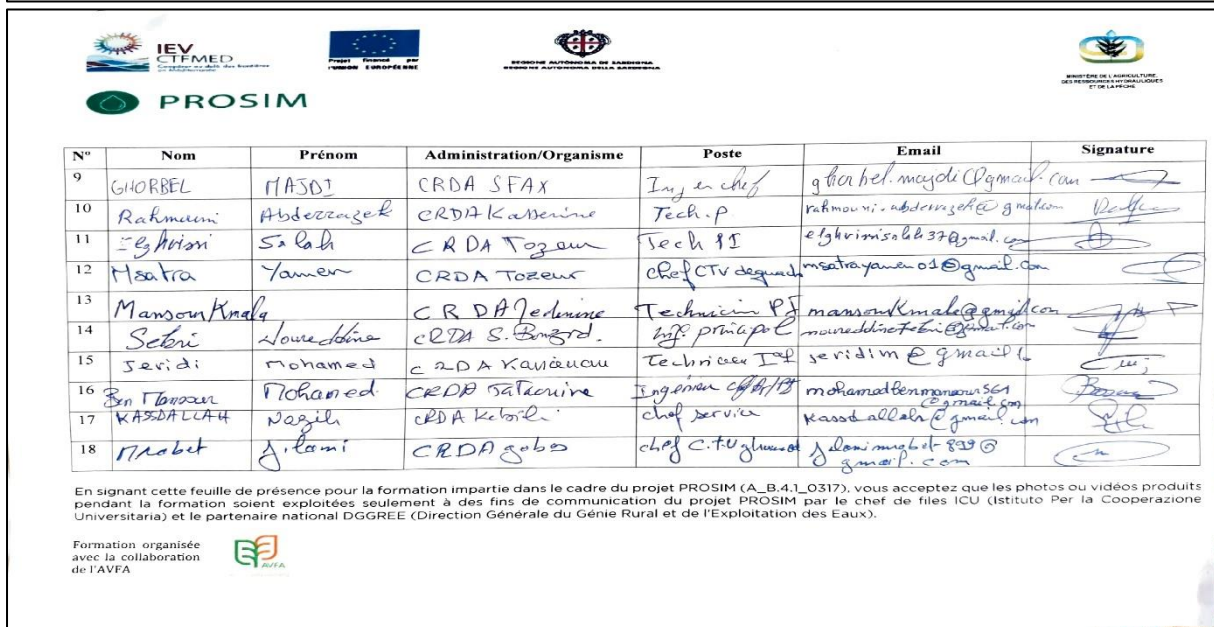 IEV
CTFMED
Projet financé par
l'UNION EUROPÉENNE
REGIONE AUTÒNOMA DE SARDIGNA
REGIONE AUTONOMA DELLA SARDEGNA
MINISTÈRE DE L'AGRICULTURE,
DES RESSOURCES HYDRAULIQUES
ET DE LA PÊCHE
PROSIM
N° Nom Prénom Administration/Organisme Poste Email Signature
9 GHORBEL MAJDI CRDA SFAX Ing en chef ghorbel.majdi@gmail.com
10 Rahmouni Abderrazek CRDA Kasserine Tech.P rahmouni.abderrazek@gmail.com
11 Salah CRDA Tozeur Tech
12 Msatra Yamen CRDA Tozeur chef CTV deguach msatrayamen01@gmail.com
13 Mansour Kmala CRDA Technicien mansourkmala@gmail.com
14 Noureddine CRDA S. principal
15 Jeridi Mohamed Technicien jeridim@gmail
16 Ben Mansour Mohamed CRDA mohamedbenmansour561@gmail.com
17 KASSDALLAH Nazih CRDA Kebili chef service kassdallah@gmail.com
18 Mrabet Jilani CRDA gabes chef C.T.V
En signant cette feuille de présence pour la formation impartie dans le cadre du projet PROSIM (A_B.4.1_0317), vous acceptez que les photos ou vidéos produits
pendant la formation soient exploitées seulement à des fins de communication du projet PROSIM par le chef de files ICU (Istituto Per la Cooperazione
Universitaria) et le partenaire national DGGREE (Direction Générale du Génie Rural et de l'Exploitation des Eaux).
Formation organisée
avec la collaboration
de l'AVFA
AVFA